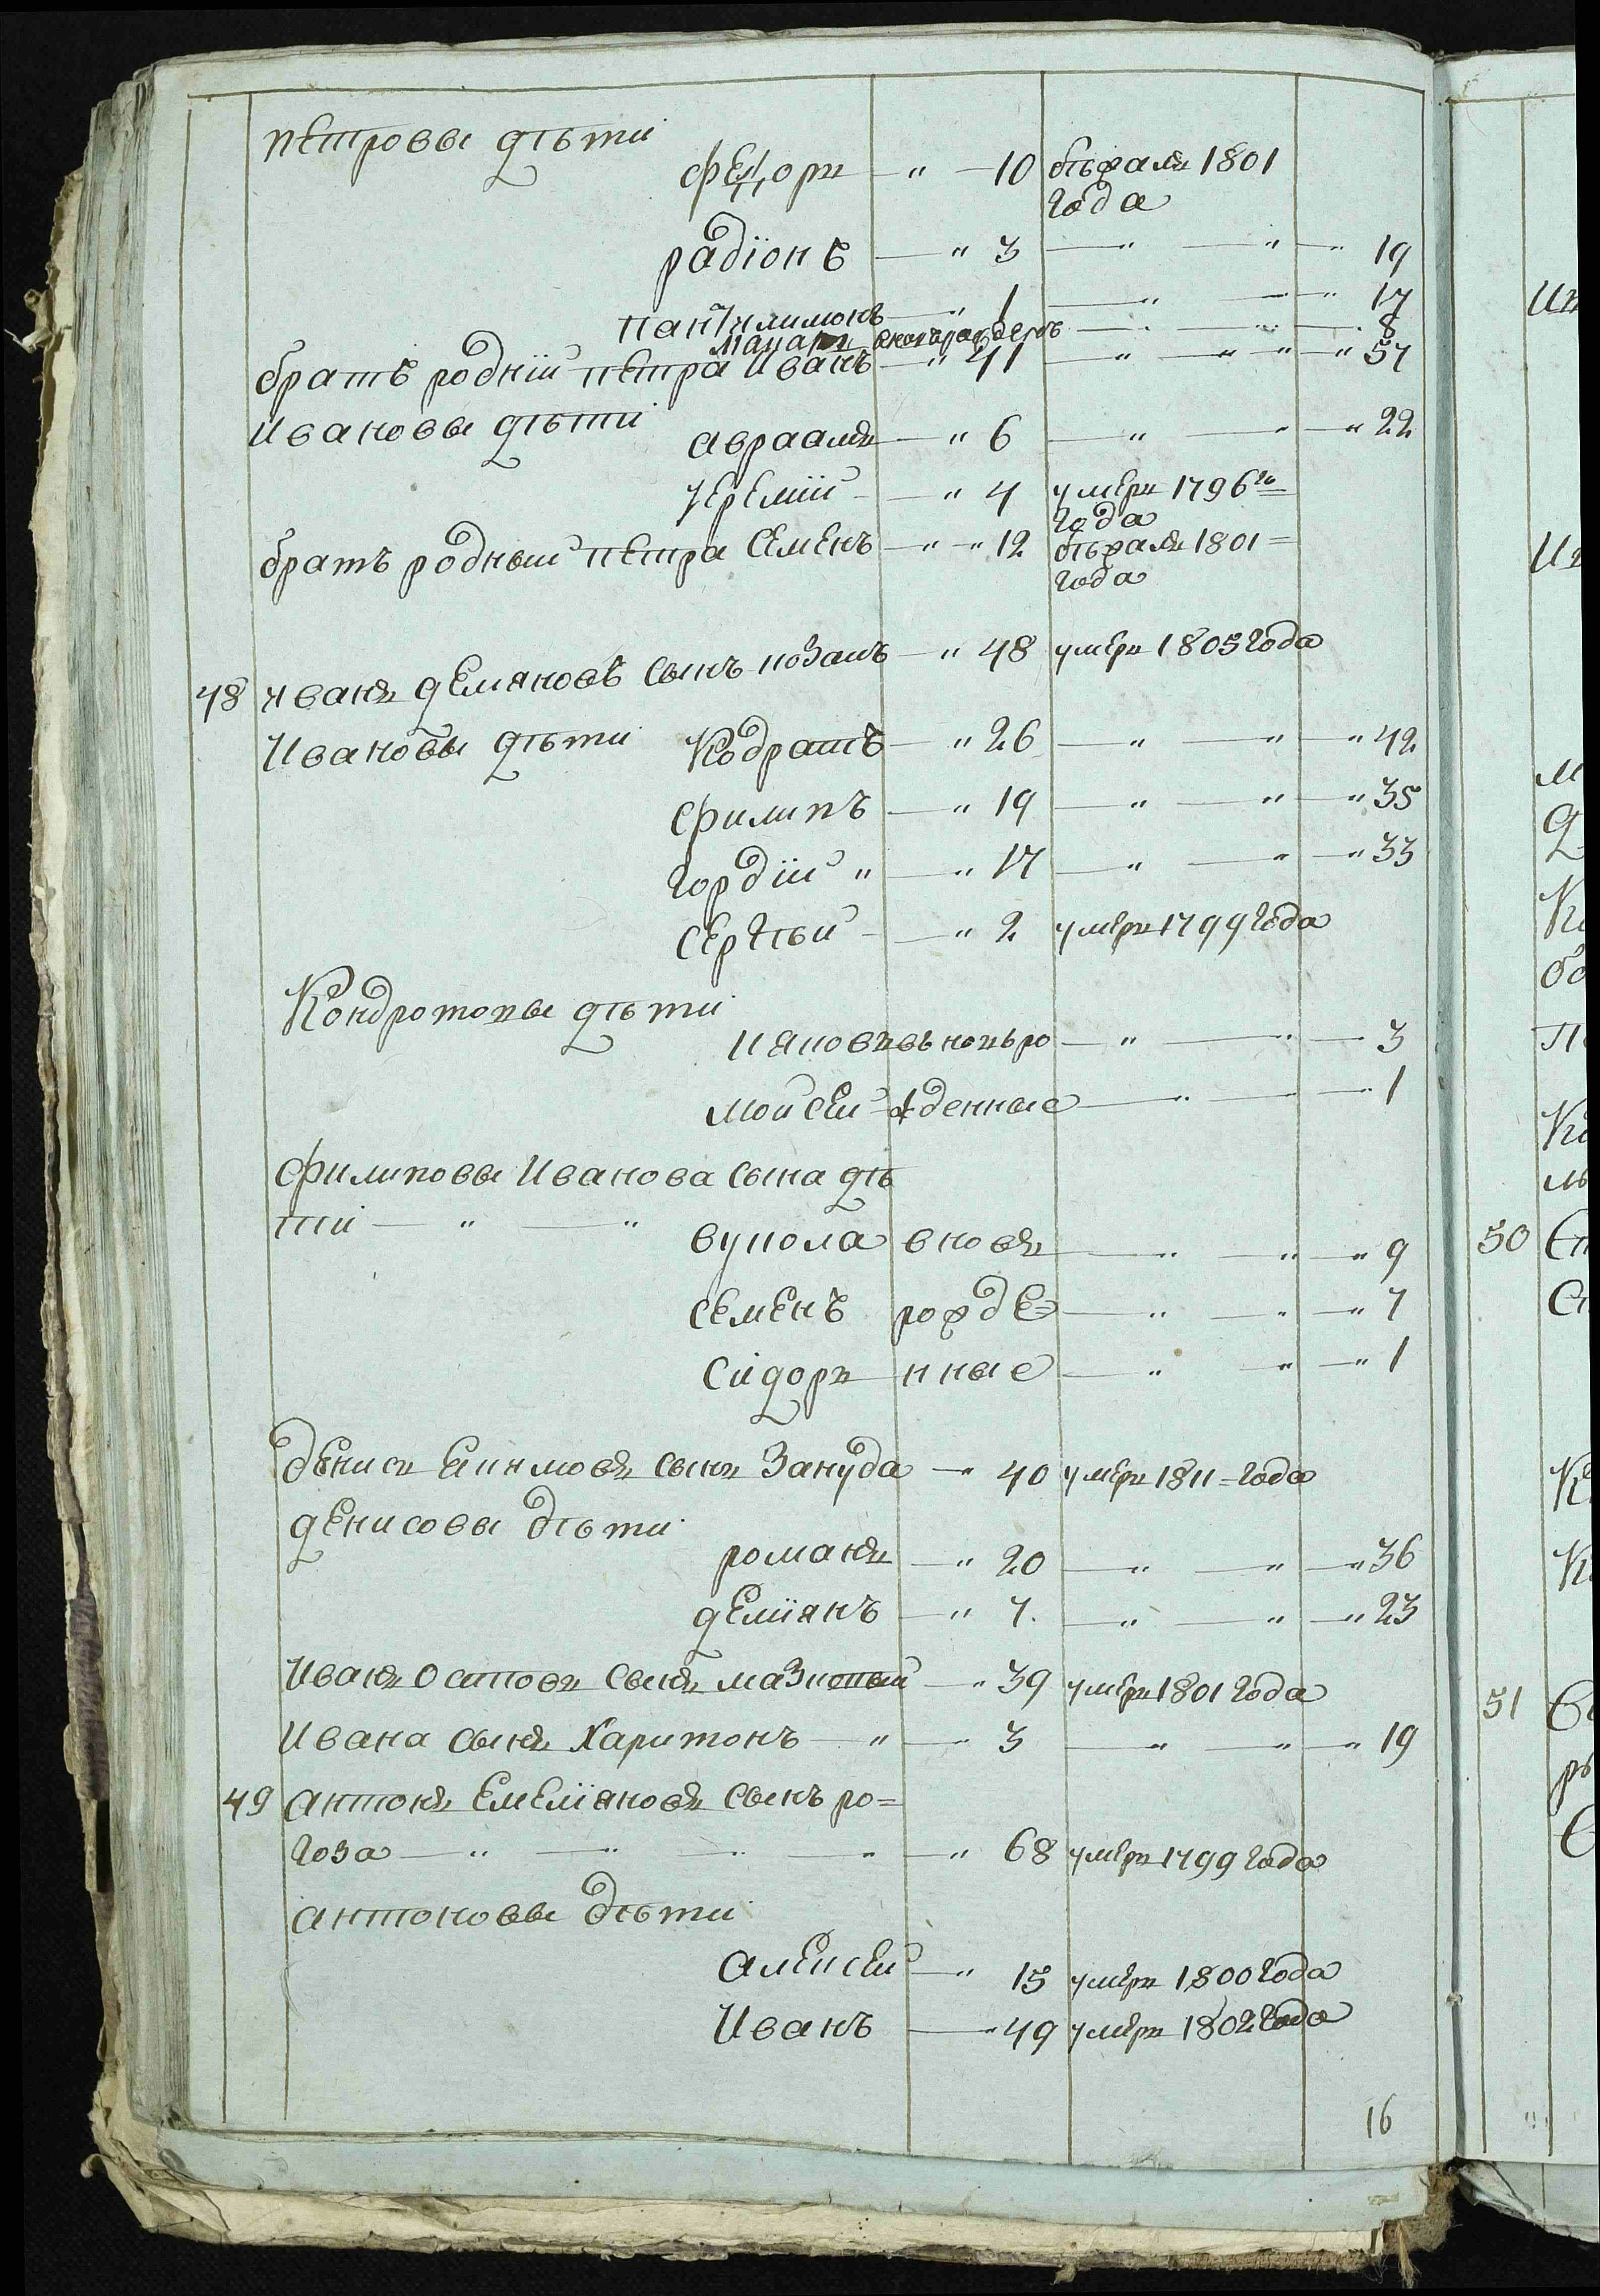 петровы дѣти
федоръ — " — 10 бѣжалъ 1801
года
радіонъ — " 3 — " — " — " 19
пантилимонъ — " 1 — " — " 17
макаръ — " — " — " 8
братъ родній петра Иванъ — " 41 — " — " " — " 57
Ивановы дѣти
авраамъ — " 6 — " — " — " 22
Іеремій — " 4 умеръ 1796го
года
братъ родный петра Семенъ — " — " 12 бѣжалъ 1801 =
года
48 Иванъ демяновъ сынъ козакъ — " 48 умеръ 1805 года
Ивановы дѣти Кодратъ — " 26 — " — " — " 42
филипъ — " 19 — " — " — " 35
гордій " — " 17 — " — " — " 33
сергѣй — " 2 умеръ 1799 года
Кондротовы дѣти
Яковъ вьновьро — " — " — 3
мойсей жденные — " — " 1
филиповы Иванова сына дѣ
ти — " — "
вукола вновъ — " — " — " 9
семенъ рожде= — " — " — " 7
сидоръ нные — " — " — " 1
денисъ сынъ Зануда — " 40 умеръ 1811 = года
денисовы дѣти
романъ — " 20 — " — " — " 36
деміянъ — " 7. — " — " — " 23
Иванъ Остповъ сынъ — " 39 умеръ 1801 года
Ивана сынъ Харитонъ — " — " 3 — " — " — " 19
49 антонъ Емеліяновъ сынъ ро=
гоза — " — " — " — " — " 68 умеръ 1799 года
антоновы дѣти
алексей — " 15 умеръ 1800 года
Иванъ — " 49 умеръ 1802 года
16
50
51